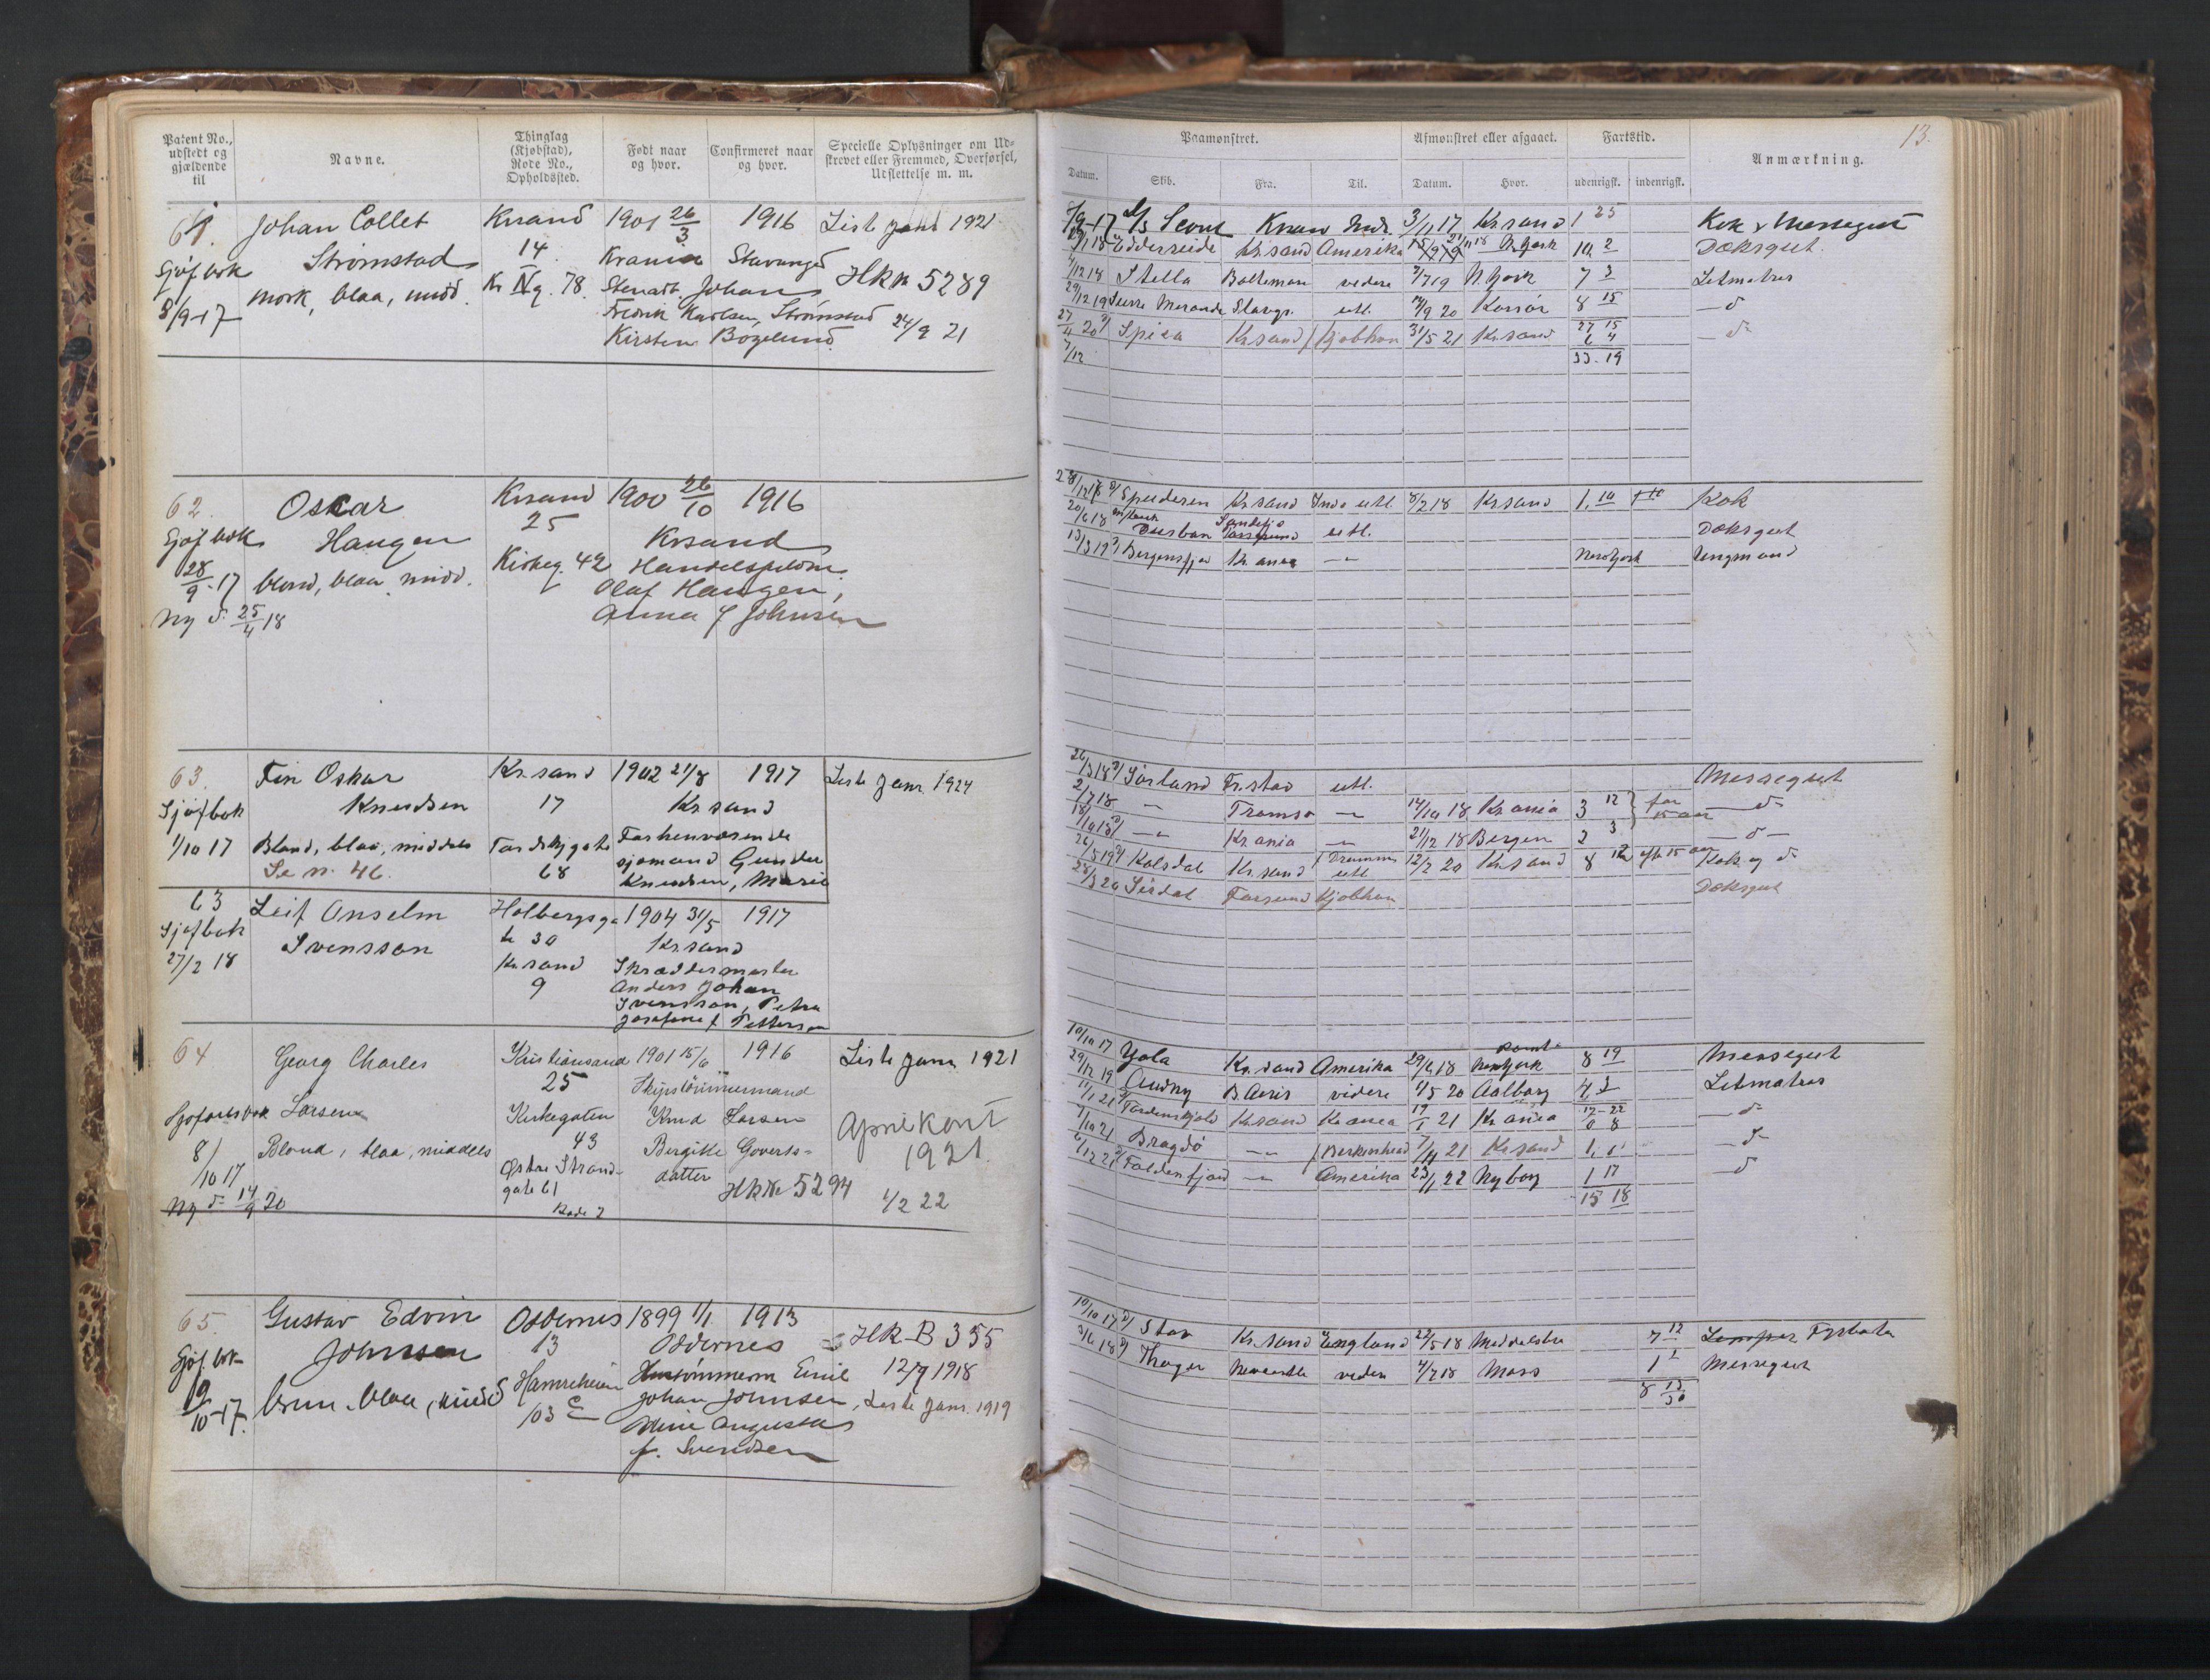 Patent No., udstedt og gjældende til
Navne.
Thinglag (Kjøbstad), Rode No., Opholdssted.
Født naar og hvor.
Confirmeret naar og hvor.
Specielle Oplysninger om Udskrevet eller Fremmed, Overførsel, Utslettelse m. m.
61.
Sjøf bok
8/9-17
Johan Collet
Strømstad
mørk, blaa, midd.
Krsand
14
Kr IV g. 78.
1901 26/3
1916
Krania Stavanger
Johan
Fredrik Karlsen Strømstad
Kirsten Bøgelund
Liste Janr 1921
Hk No 5289
24/9 21
62.
Sjøf bok
28/9-17
Ny d. 25/4 18
Oskar
Haugen
blond, blaa midd.
Krsand
25
Kirkeg. 42
1900 26/10
1916
Krsand
Olaf Haugen,
Anna f Johnsen
63.
Sjøfbok
1/10 17
Fin Oskar
Knudsen
Blond, blaa, middels
Se nr. 46.
Kr.sand
17
68
1902 21/8
1917
Kr sand
Farhenværende
sjømand Gunder
Knudsen, Marie
Liste Janr 1924
63
Sjøfbok
27/2 18
Leif Anselm
Svensson
Holbergsga
te 30
Kr sand
9
1904 31/5
1917
Kr.sand
Skræddermester
Anders Johan
Svensson, Petra
Josefine f Petterson
64
Sjøfartsbok
8/10 17
Ny d. 14/9 20
Georg Charles
Larsen
Blond, blaa, middels
Kristiansand
25
Kirkegaten
43
Østre Strand-
gate 61
Rode 2
1901 15/6
1916
Skipstømmermand
Knud Larsen
Birgitte Goverts-
datter
Hk No 5294
Liste Janr 1921
1921.
1/2 22
65.
Sjøf. bok
9/10-17.
Gustav Edvin
Johnsen
brun, blaa, midd
Oddernes
13
Hamreheien
103 C
1899 1/1
1913
Oddernes
Hustømmerm Emil
Johan Johnsen,
Augusta
f. Svendsen
Hk-B 355
12/9 1918
Liste Janr. 1919
13.
Paamønstret.
Afmønstret eller afgaaet.
Fartstid.
Anmærkning.
Datum.
Skib.
Fra.
Til.
Datum.
Hvor.
udenrigsk.
indenrigsk.
8/9-17 D/S Scout Krsand 3/11 17 Kr.sand 1 25 Kok & Messegut
Kr.sand Amerika N.York 10. 2 Dæksgut.
4/12 18 Stella Baltimore videre 7/19 N.York 7 3 Letmatros
29/12 19 Stavgr. utl. 14/9 20 Korsør 8 15 — d
27 15
4/12 20 Spica Kr.sand Kjøbhvn 31/5 21 Kr.sand 6 4 — d
33-19
28/12 17 Spideren Kr.sand utl. 8/2 18 Kr.sand 1. 10 Kok
20/6 18 Sandefj. utl. Dæksgut
13/3 19 Bergensfjord Kr.ania — New York Ungmand
26/3 18 Sørland Fr.stad utl. Messegut
2/7 18 — Tromsø — 14/10 18 Kr.ania 3 12 før 15 aar — d
— Kr.ania — 21/12 18 Bergen 2 3 — d —
26/5 19 Kolsdal Kr.sand Drammen utl 12/2 20 Kr.sand 8 12 efter 15 aar Kok og d
28/3 20 Sirdal Farsund Kjøbhvn Dæksgut
10/10 17 Yola Kr.sand Amerika 29/6 18 New York 8 19 Messegut
29/12 19 Audny B.Aeris videre 1/5 20 Aalborg 4 3 Letmatros
12-22
11/1 21 Tordenskjold Kr.sand Kr.ania 19/1 21 Kr.ania 0 8 — d
1/10 21 Bragdø — Birkenhead 7/11 21 Kr.sand 1. 1 — d
6/12 21 Foldenfjord — Amerika 23/1 22 Nyborg 1 17 — d
15 18
10/10 17 Stav Kr.sand England 22/5 18 Middelsbro 7 12 Fyrbøter
3/6 18 Thager Newcastle videre 4/7 18 Moss 1 1 Messegut
8 13/30